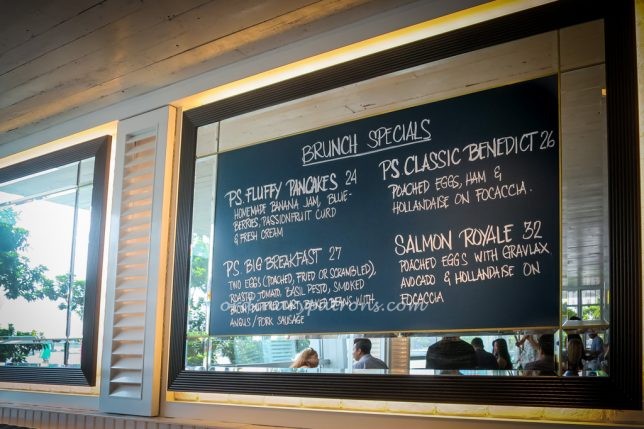 BRUNCH SPECIALS
P.S. FLUFFY PANCAKES 24
HOMEMADE BANANA JAM, BLUE-
BERRIES, PASSIONFRUIT CURD
& FRESH CREAM
P.S. BIG BREAKFAST 27
TWO EGGS (POACHED, FRIED OR SCRAMBLED),
ROASTED TOMATO, BASIL PESTO, SMOKED
BACON, BUTTERED TOAST, BAKED BEANS WITH
ANGUS / PORK SAUSAGE
P.S. CLASSIC BENEDICT 26
POACHED EGGS, HAM &
HOLLANDAISE ON FOCACCIA.
SALMON ROYALE 32
POACHED EGGS WITH GRAVLAX
AVOCADO & HOLLANDAISE ON
FOCACCIA